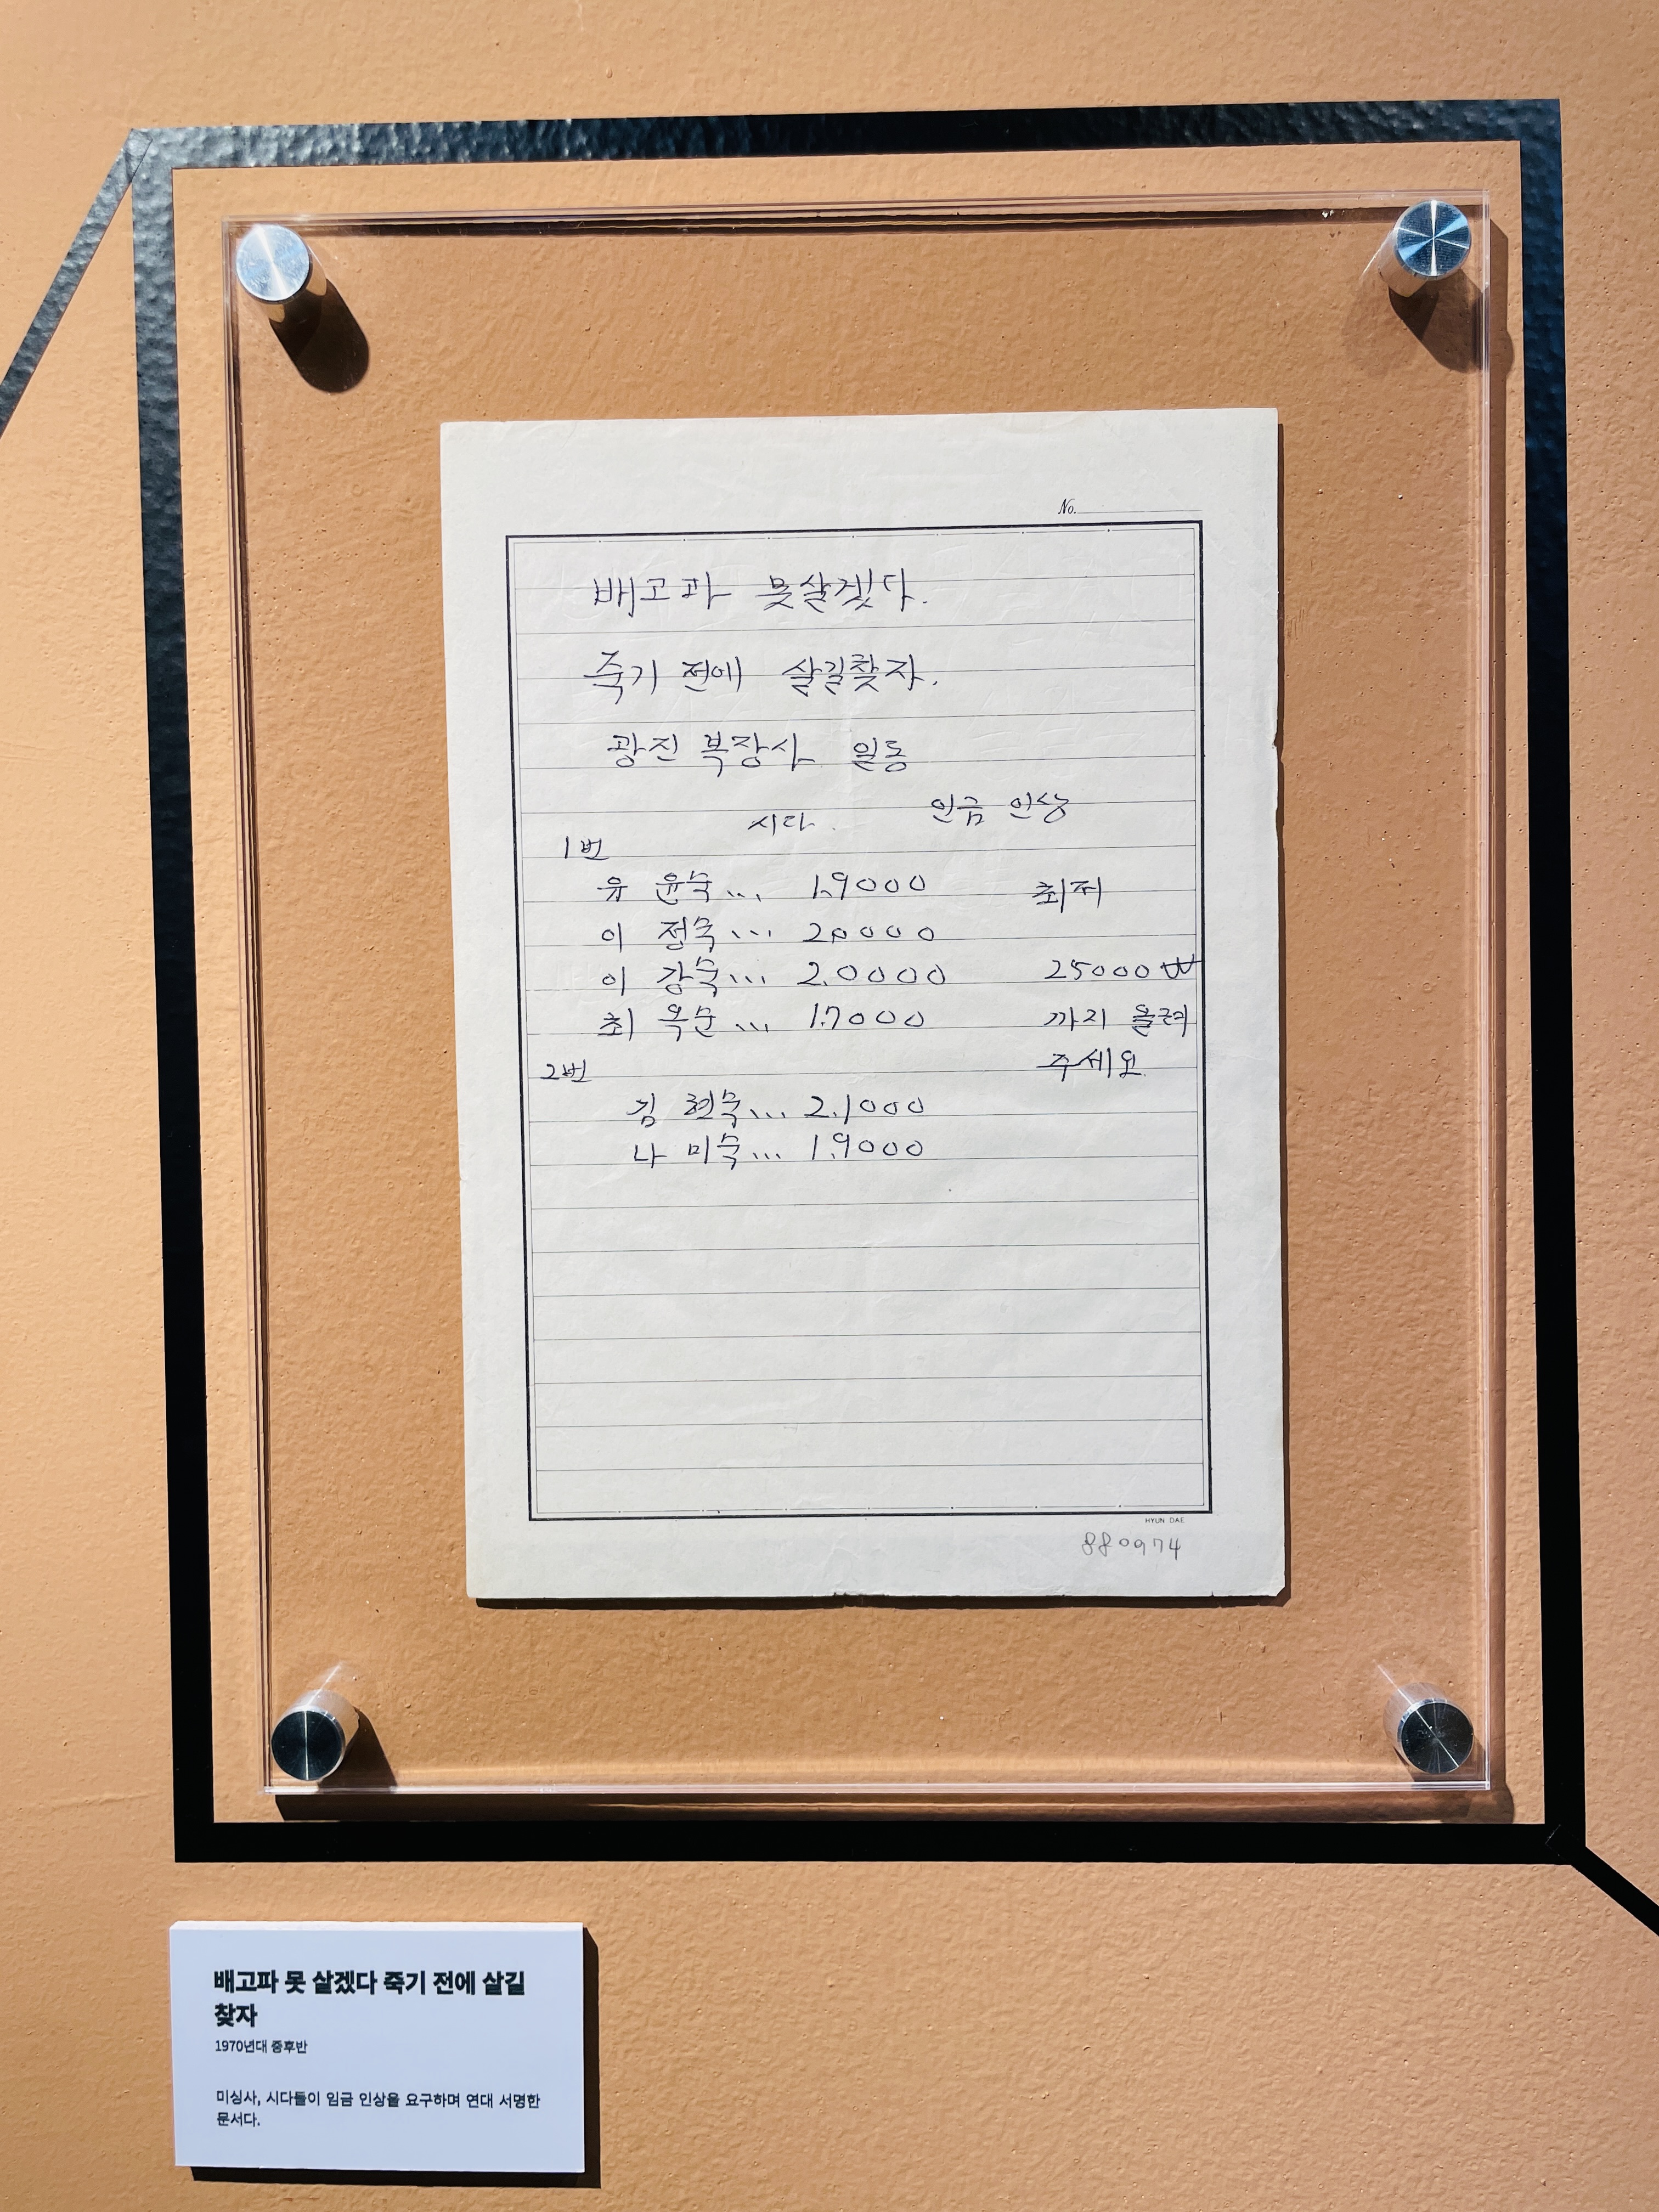 No.
배고파 못살겠다.
죽기 전에 살길찾자.
광진 복장사 일동
시다. 인금 인상
1번
유 윤숙... 1.9000 최저
이 정숙... 2.0000
이 강숙... 2.0000 25000₩
최 옥순... 1.7000 까지 올려
2번 주세요.
김 현숙... 2.1000
나 미숙... 1.9000
HYUN DAE
880974
배고파 못 살겠다 죽기 전에 살길
찾자
1970년대 중후반
미싱사, 시다들이 임금 인상을 요구하며 연대 서명한
문서다.